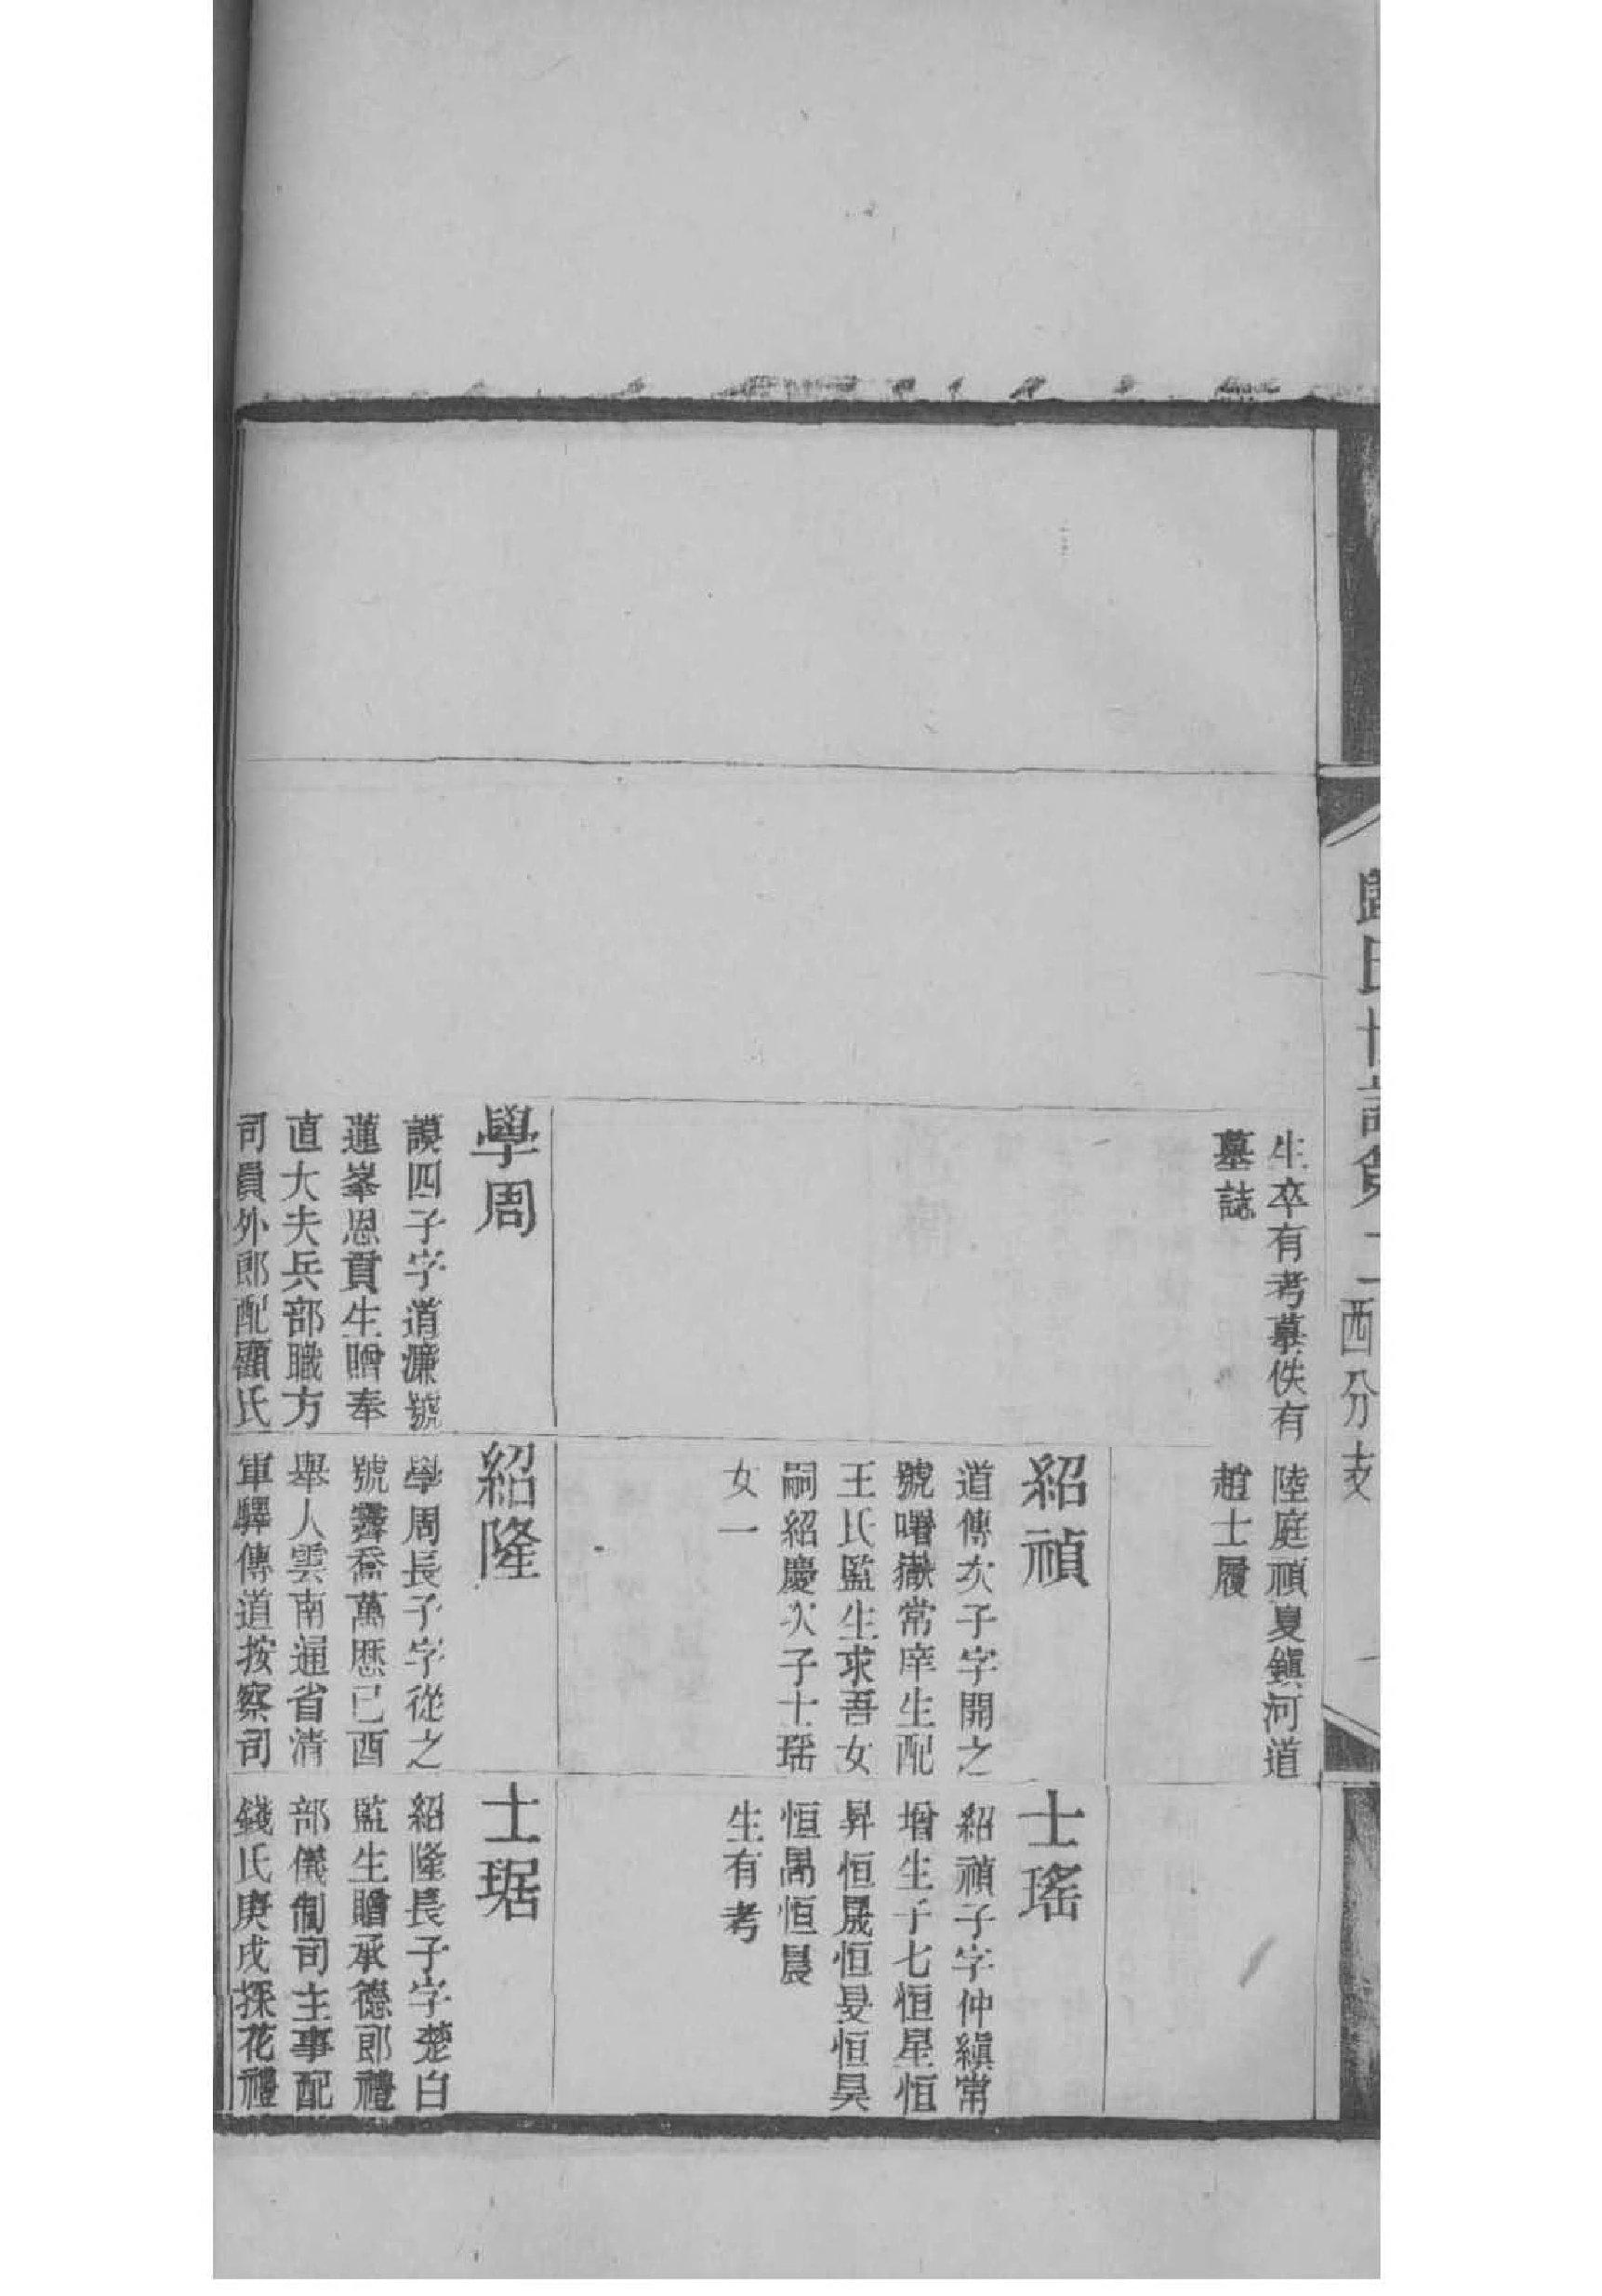 歸氏世譜卷二 西分支
生卒有考墓佚有
墓誌
學周
謨四子字道濂號
蓮峯恩貢生贈奉
直大夫兵部職方
司員外郎配顧氏
陸庭禎夏鎮河道
趙士履
紹禎
道傳次子字開之
號曙嶽常庠生配
王氏監生求吾女
嗣紹慶次子士瑶
女一
紹隆
學周長子字從之
號霽喬萬厯已酉
舉人雲南通省清
軍驛傳道按察司
士瑤
紹禎子字仲縝常
增生子七恒星恒
昇恒晟恒旻恒昊
恒勗恒晨
生有考
士琚
紹隆長子字楚白
監生贈承德郎禮
部儀制司主事配
錢氏庚戌探花禮